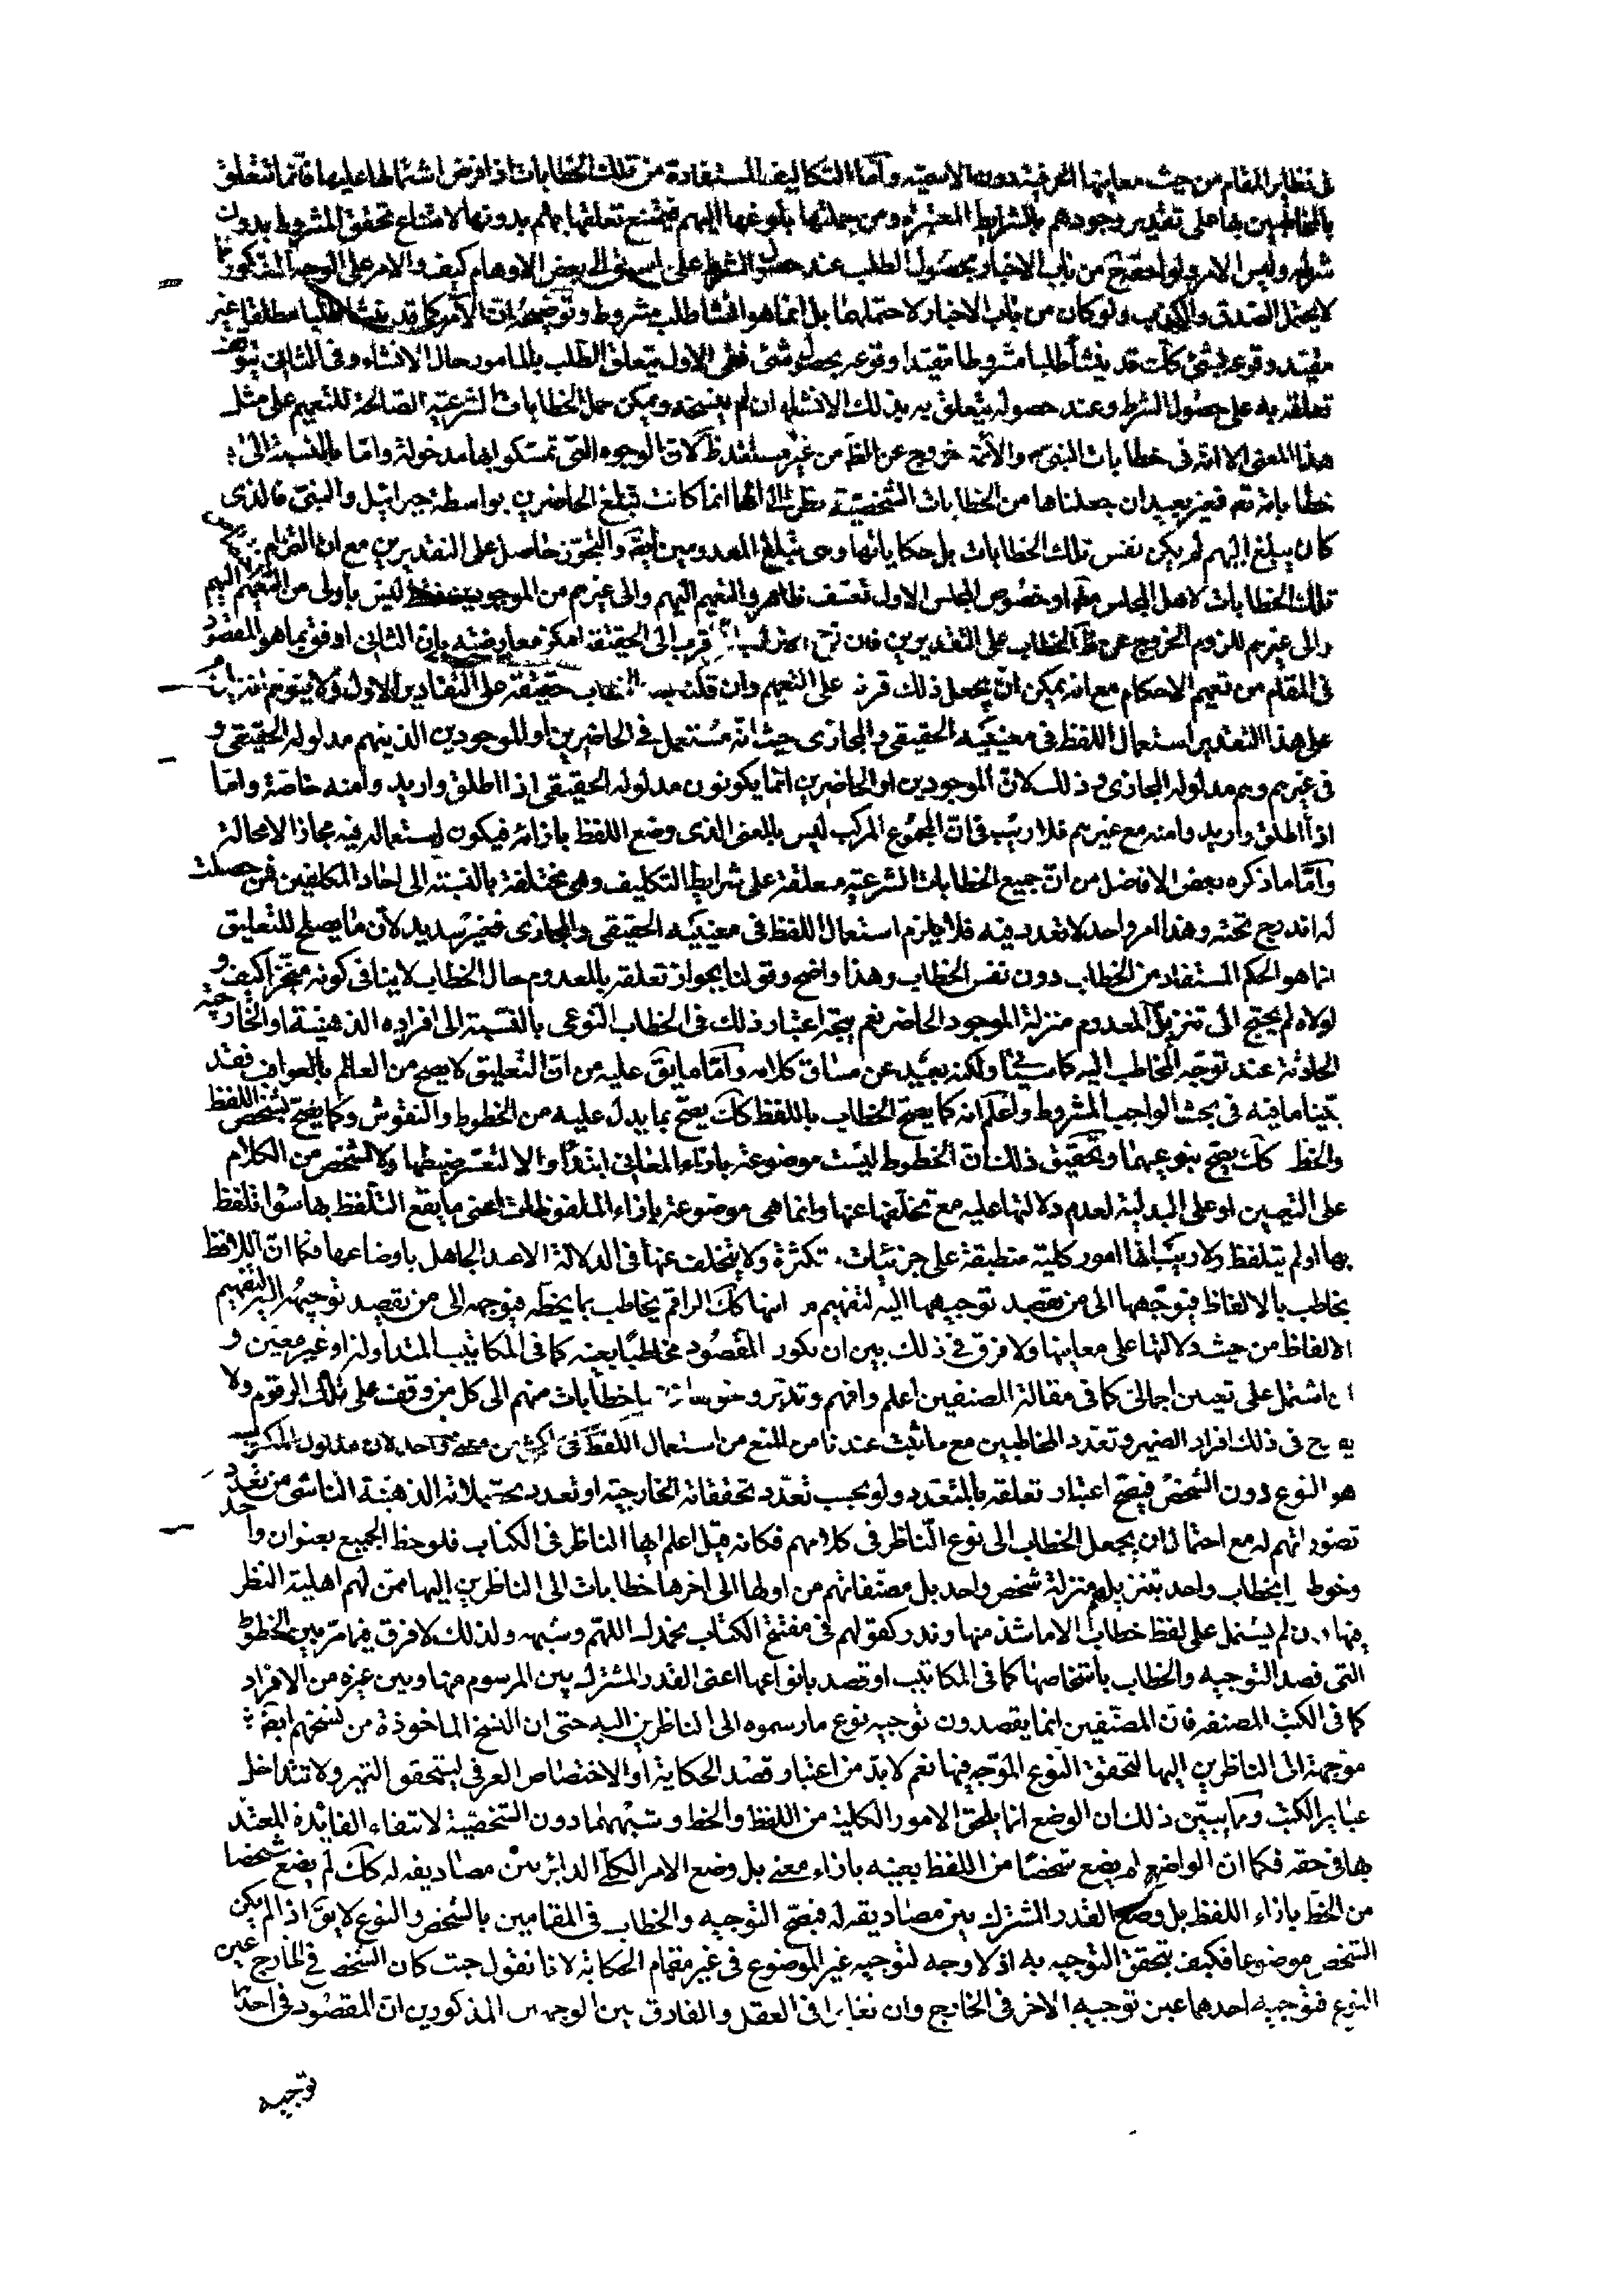 في نظاير المقام من حيث معانيها الحرفية دون الاسمية وأما التكاليف المستفادة من تلك الخطابات اذا فرض اشتمالها عليها فانما تتعلق
بالمخاطبين بها على تقدير وجودهم بالشرايط المعتبرة ومن جملتها بلوغها اليهم فيمتنع تعلقها بهم بدونها لامتناع تحقق المشروط بدون
شرطه وليس الامر من باب الاخبار بحصول الطلب عند حصول الشرط على ما سبق الى بعض الاوهام كيف والامر على الوجه المذكور مما
لا يحتمل الصدق والكذب ولو كان من باب الاخبار لاحتملهما بل انما هو انشا طلب مشروط وتوضيحه ان الآمر كما قد ينشأ طلبا مطلقا غير
مقيد وقوعه بشئ كك قد ينشأ طلبا مشروطا مقيدا وقوعه بحصول شئ ففي الاول يتعلق الطلب بالمامور حال الانشاء وفي الثاني يتوقف
تعلقه به على حصول الشرط وعند حصوله يتعلق به بذلك الانشاء ان لم ينسخه ويمكن حمل الخطابات الشرعية الصالحة للتعميم على مثل
هذا المعنى الا انه في خطابات النبي والأئمة خروج عن الظ من غير مستند ظ لان الوجوه التي تمسكوا بها مدخولة واما بالنسبة الى
خطاباته تعم فغير بعيد ان جعلناها من الخطابات الشخصية نظرا الى انها انما كانت تبلغ الحاضرين بواسطة جبرائيل والنبي فالذي
كان يبلغ اليهم لم يكن نفس تلك الخطابات بل حكاياتها وهي تبلغ المعدومين ايضا والتجوز حاصل على التقديرين مع ان التزام
تلك الخطابات لاهل المجالس او خصوص المجلس الاول تعسف ظاهر والتعميم اليهم والى غيرهم من الموجودين فقط ليس باولى من التعميم اليهم
والى غيرهم للزوم الخروج عن ظ الخطاب على التقديرين فان اقرب الى الحقيقة امكن معارضته بان الثاني اوفق بما هو المقصود
في المقام من تعميم الاحكام مع انه يمكن ان يجعل ذلك قرينة على التعميم وان قلنا الخطاب حقيقة على التقدير الاول ولا يتوهم انه
على هذا التقدير استعمال اللفظ في معنييه الحقيقي والمجازي حيث انه مستعمل في الحاضرين او الموجودين الذين هم مدلوله الحقيقي و
في غيرهم وهم مدلوله المجازي وذلك لان الموجودين او الحاضرين انما يكونون مدلوله الحقيقي اذا اطلق واريدوا منه خاصة واما
اذا اطلق واريدوا منه مع غيرهم فلا ريب في ان المجموع المركب ليس بالمعنى الذي وضع اللفظ بازائه فيكون استعماله فيه مجازا لا محالة
وأما ما ذكره بعض الافاضل من ان جميع الخطابات الشرعية معلقة على شرايط التكليف وهي مختلفة بالنسبة الى احاد المكلفين فمن حصلت
له اندرج تحته وهذا امر واحد لا تعدد فيه فلا يلزم استعمال اللفظ في معنييه الحقيقي والمجازي فغير سديد لان ما يصلح للتعليق
انما هو الحكم المستفاد من الخطاب دون نفس الخطاب وهذا واضح وقولنا بجواز تعلقه بالمعدوم حال الخطاب لا ينافي كونه منجزا كيف و
لولاه لم يحتج الى تنزيل المعدوم منزلة الموجود الحاضر نعم يتجه اعتبار ذلك في الخطاب النوعي بالنسبة الى افراده الذهنية او الخارجية
الحادثة عند توجه المخاطب اليه كما سيأتي ولكنه بعيد عن مساق كلامه وأما ما يق عليه من ان التعليق لا يصح من العالم بالعواقب فقد
بينا ما فيه في بحث الواجب المشروط واعلم انه كما يصح الخطاب باللفظ كك يصح بما يدل عليه من الخطوط والنقوش وكما يصح بشخص اللفظ
والخط كك يصح بنوعهما وتحقيق ذلك ان الخطوط ليست موضوعة بازاء المعاني ابتداء والا لتعسر ضبطها ولا لشخص من الكلام
على التعيين او على البدلية لعدم دلالتها عليه مع تخلفها عنها وانما هي موضوعة بازاء الملفوظات اعني ما يقع التلفظ بها سواء تلفظ
بها او لم يتلفظ ولا ريب انها امور كلية منطبقة على جزئيات متكثرة ولا يتخلف عنها في الدلالة الا عند الجاهل باوضاعها فكما ان اللافظ
يخاطب بالالفاظ فيتوجهها الى من يقصد توجيهها اليه لتفهيم معانيها كك الراقم يخاطب بما يخطه فيتوجه الى من يقصد توجيهه اليه لتفهيم
الالفاظ من حيث دلالتها على معانيها ولا فرق في ذلك بين ان يكون المقصود مخاطبا بعينه كما في المكاتيب المتداولة او غير معين و
ان اشتمل على تعيين اجمالي كما في مقالة المصنفين اعلم وافهم وتدبر ونحو خطابات منهم الى كل من وقف على تلك الرقوم ولا
يقدح في ذلك افراد الضمير وتعدد المخاطبين مع ما ثبت عندنا من المنع من استعمال اللفظ في اكثر من معنى واحد لان مدلول المكتوب
هو النوع دون الشخص فيصح اعتبار تعلقه بالمتعدد ولو بحسب تعدد تحققاته الخارجية او تعدد محتملاته الذهنية الناشئ من تعدد
تصوراتهم له مع احتمال ان يجعل الخطاب الى نوع الناظر في كلامهم فكانه قيل اعلم ايها الناظر في الكتاب فلوحظ الجميع بعنوان واحد
وخوطبوا بخطاب واحد بتنزيلهم منزلة شخص واحد بل مصنفاتهم من اولها الى اخرها خطابات الى الناظرين اليها ممن لهم اهلية النظر
فيها وان لم يشتمل على لفظ خطاب الا ما شذ منها وندر كقولهم في مفتتح الكتاب نحمدك اللهم وشبهه ولذلك لا فرق فيما مر بين الخطوط
التي قصد التوجيه والخطاب باشخاصها كما في المكاتب او قصد بانواعها اعني القدر المشترك بين المرسوم منها وبين غيره من الافراد
كما في الكتب المصنفة فان المصنفين انما يقصدون توجيه نوع ما رسموه الى الناظرين اليه حتى ان النسخ الماخوذة من نسختهم ايضا
موجهة الى الناظرين اليها لتحقق النوع الموجه فيها نعم لا بد من اعتبار قصد الحكاية او الاختصاص العرفي ليتحقق التميز ولا تتداخل
عباير الكتب ومما يبين ذلك ان الوضع انما يلحق الامور الكلية من اللفظ والخط وشبههما دون الشخصية لانتفاء الفائدة المعتد
بها في حقه فكما ان الواضع لم يضع شخصا من اللفظ بعينه بازاء معنى بل وضع الامر الكلي الدائر بين مصاديقه له كك لم يضع شخصا
من الخط بازاء اللفظ بل وضع القدر المشترك بين مصاديقه له فيصح التوجيه والخطاب في المقامين بالشخص والنوع لا يق اذا لم يكن
الشخص موضوعا فكيف يتحقق التوجيه به اذ لا وجه لتوجيه غير الموضوع في غير مقام الحكاية لانا نقول حيث كان الشخص في الخارج عين
النوع فتوجيه احدهما عين توجيه الاخر في الخارج وان تغايرا في العقل والفارق بين الوجهين المذكورين ان المقصود في احدهما
توجيه